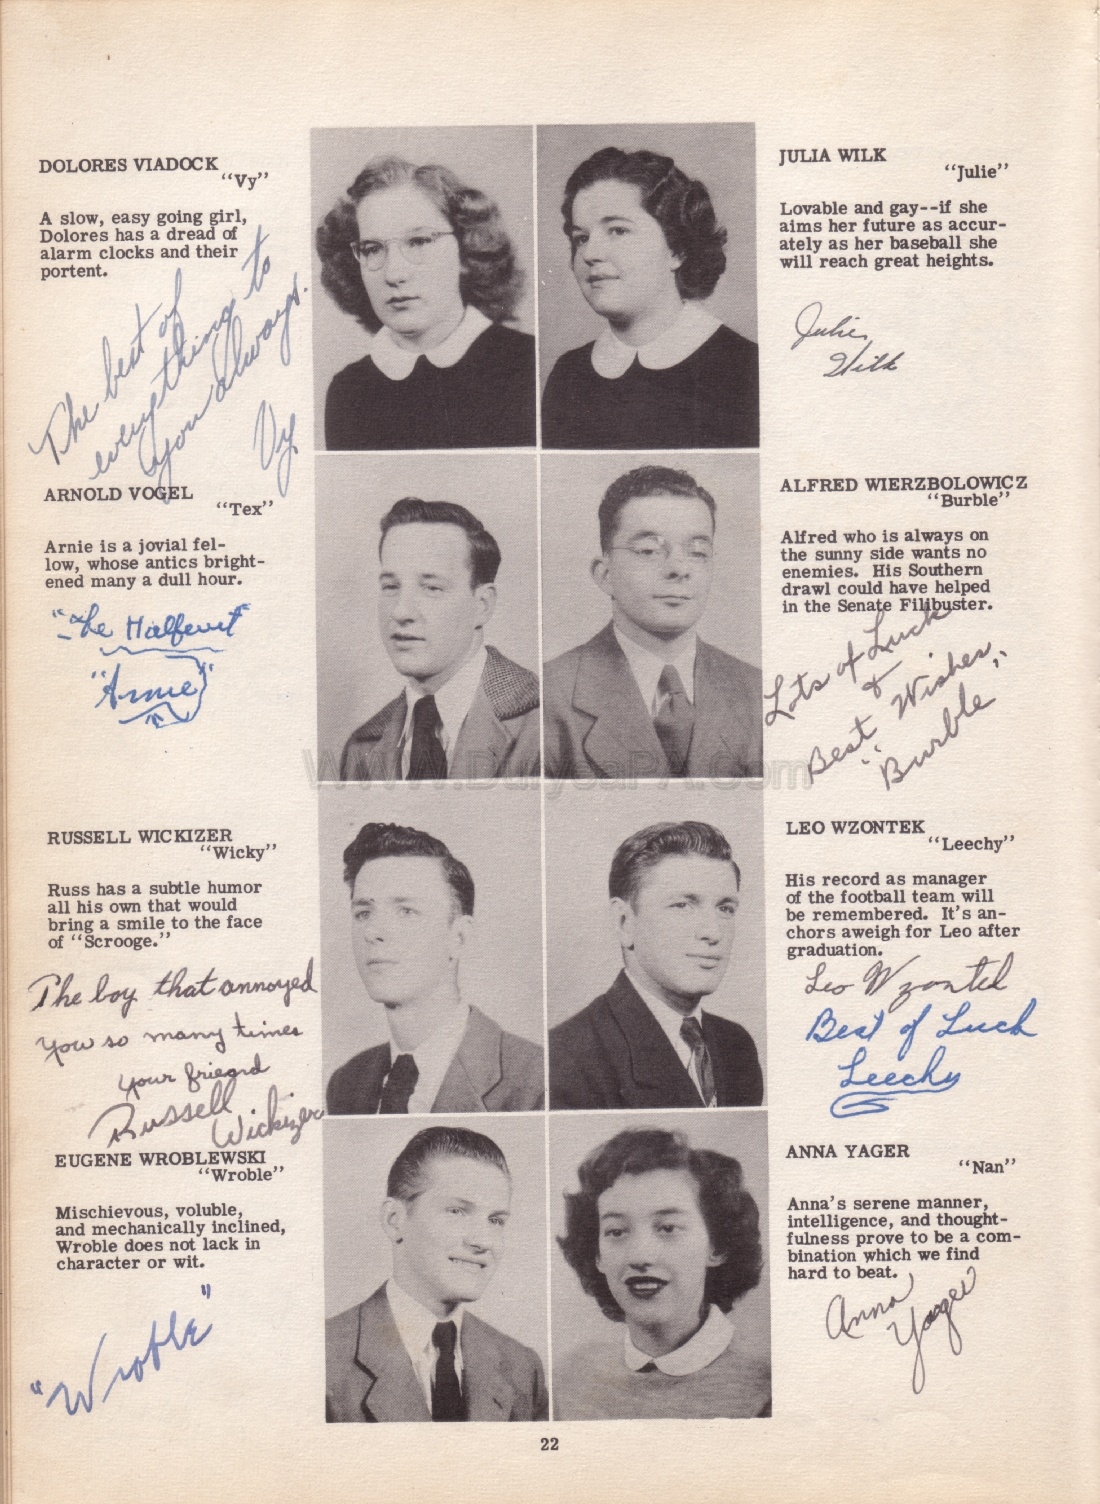 DOLORES VIADOCK
"Vy"
A slow, easy going girl,
Dolores has a dread of
alarm clocks and their
portent.
The best of
everything to
you always.
Vy
JULIA WILK
"Julie"
Lovable and gay--if she
aims her future as accur-
ately as her baseball she
will reach great heights.
Julie
Wilk
ARNOLD VOGEL
"Tex"
Arnie is a jovial fel-
low, whose antics bright-
ened many a dull hour.
"The Halfwit"
"Arnie"
ALFRED WIERZBOLOWICZ
"Burble"
Alfred who is always on
the sunny side wants no
enemies. His Southern
drawl could have helped
in the Senate Filibuster.
Lots of Luck
&
Best Wishes,
"Burble"
WWW.DuryeaPA.Com
RUSSELL WICKIZER
"Wicky"
Russ has a subtle humor
all his own that would
bring a smile to the face
of "Scrooge."
The boy that annoyed
you so many times
your friend
Russell
Wickizer
LEO WZONTEK
"Leechy"
His record as manager
of the football team will
be remembered. It's an-
chors aweigh for Leo after
graduation.
Leo Wzontek
Best of Luck
Leechy
EUGENE WROBLEWSKI
"Wroble"
Mischievous, voluble,
and mechanically inclined,
Wroble does not lack in
character or wit.
"Wroble"
ANNA YAGER
"Nan"
Anna's serene manner,
intelligence, and thought-
fulness prove to be a com-
bination which we find
hard to beat.
Anna
Yager
22